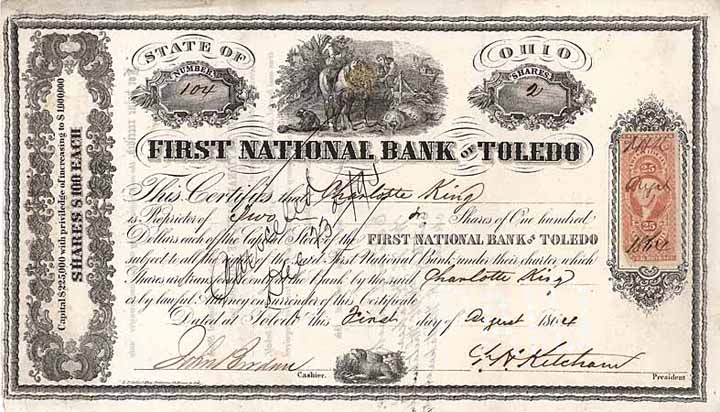 STATE OF OHIO
NUMBER SHARES
104 2
FIRST NATIONAL BANK OF TOLEDO
This Certifies that Charlotte King
is Proprietor of Two Shares of One hundred
Dollars each of the Capital Stock of the FIRST NATIONAL BANK OF TOLEDO
subject to all the of the said First National Bank, under their charter, which
Shares are transferable only at the Bank by the said Charlotte King
or by lawful Attorney on surrender of this Certificate
Dated at Toledo this First day of August 1864
Cashier. G. H. Ketcham
President
Cancelled
Dec 23
Capital $225,000 with priviledge of increasing to $1,000,000
SHARES $100 EACH
25 25
25